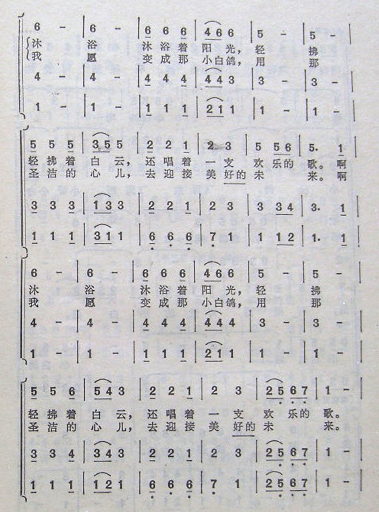 6 - | 6 - | 6 6 6 | 4 6 6 | 5 - | 5 - |
沐 浴 沐浴着 阳光，轻 拂
我 愿 变成那 小白鸽，用 那
4 - | 4 - | 4 4 4 | 2 4 4 | 3 - | 3 - |
1 - | 1 - | 1 1 1 | 2 1 1 | 1 - | 1 - |
5 5 5 | 3 5 5 | 2 2 1 | 2 3 | 5 5 6 | 5. 1 |
轻拂着 白云，还唱着 一支 欢乐的 歌。啊
圣洁的 心儿，去迎接 美好的 未 来。啊
3 3 3 | 1 3 3 | 2 2 1 | 2 3 | 3 3 4 | 3. 1 |
1 1 1 | 3 1 1 | 6 6 6 | 7 1 | 1 1 2 | 1. 1 |
6 - | 6 - | 6 6 6 | 4 6 6 | 5 - | 5 - |
沐 浴 沐浴着 阳光，轻 拂
我 愿 变成那 小白鸽，用 那
4 - | 4 - | 4 4 4 | 2 4 4 | 3 - | 3 - |
1 - | 1 - | 1 1 1 | 2 1 1 | 1 - | 1 - |
5 5 6 | 5 4 3 | 2 2 1 | 2 3 | 2 5 6 7 | 1 - |
轻拂着 白云，还唱着 一支 欢乐的 歌。
圣洁的 心儿，去迎接 美好的未 来。
3 3 4 | 3 4 3 | 2 2 1 | 2 3 | 2 5 6 7 | 1 - |
1 1 1 | 1 2 1 | 6 6 6 | 7 1 | 2 5 6 7 | 1 - |